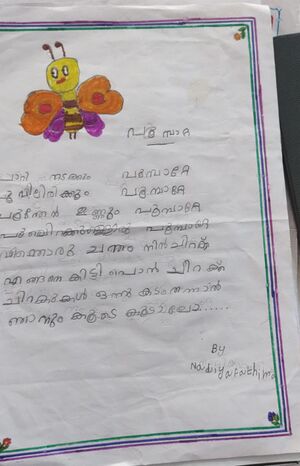 പൂമ്പാറ്റ
പാറി നടക്കും പൂമ്പാറ്റേ
പൂവിലിരിക്കും പൂമ്പാറ്റേ
പൂന്തേൻ ഉണ്ണും പൂമ്പാറ്റേ
പൂമ്പാറ്റേ
നിൻചിറക്
എങ്ങനെ കിട്ടി പൊൻ ചിറക്
ചിറകുകൾ ഒന്നു കടം തന്നാൽ
ഞാനും കൂടെ കൂടാലോ......
By
Nadiya fathima